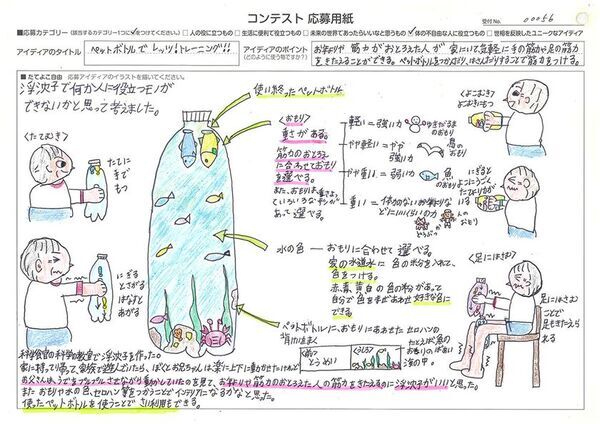 コンテスト 応募用紙
受付No. 00056
■応募カテゴリー（該当するカテゴリー1つに✓をつけてください。） □人の役に立つもの □生活に便利で役立つもの □未来の世界であったらいいなと思うもの ✓体の不自由な人に役立つもの □世相を反映したユニークなアイディア
アイディアのタイトル
ペットボトルで レッツ!トレーニング!!
アイディアのポイント
（どのように使う物ですか？）
お年よりや 筋力がおとろえた人が 家にいて気軽に手の筋力や足の筋力
をきたえることができる。ペットボトルをつかんだり、はさんだりすることで筋力をつける。
■たてよこ自由 応募アイディアのイラストを描いてください。
浮沈子で何か人に役立つモノが
できないかと思って考えました。
使い終ったペットボトル
<たてむき>
たてに
手で
もつ
にぎる
とさがる
はなすと
あがる
<おもり>
重さがある。
筋力のおとろえ
に合わせておもり
を選べる。
また、おもりは、重さによって
いろいろな
あって 選べる。
軽い = 強い力
ゆきだるまの
おもり
やや軽い = やや
強い力
鳥の
おもり
やや重い = 弱い力
魚
の
おもり
重い = 体力のないお年よりなら
どに いい(らいの力)
どうぶつ
人の
おもり
<よこむき>
よこむきにもつ
にぎると
よこにうごく
水の色 ― おもりに合わせて 選べる。
家の水道水に 色の粉を入れて、
色をつける。
赤 青 黄 白の色の粉があって
自分で色をまぜあわせ 好きな色に
できる
ペットボトルに、おもりにあわせた セロハン
背けいはまく
<前>
とうめい
<後ろ>
たとえば魚の
おもりのが
海の中。
<足にはさむ>
足にはさむ
ことで
足もきたえられ
る
科学食官の科学の教室で浮沈子を作った。
家に持って帰って家族で遊んでいたら、ぼくとお兄ちゃんは楽に上下に動かせていたけれど
お父さんは、うでをプルプルさせながら動かしていたのを見て、お年よりや筋力のおとろえた人の筋力をきたえるのに浮沈子がいいと思った。
また おもりや水の色、セロハン等をつかうことでインテリアにもなるかなと思う。
使ったペットボトルを使うことで さい利用もできる。